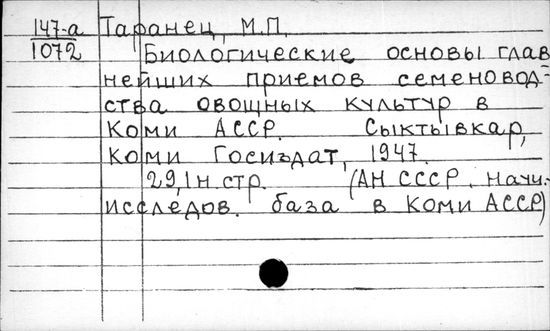 147-а Таранец, М.П.
1072 Биологические основы глав
нейших приемов семеновод-
ства овощных культур в
Коми АССР. Сыктывкар,
Коми Госиздат, 1947.
29,1н.стр. (АН СССР. начи.
исследов. база в Коми АССР)